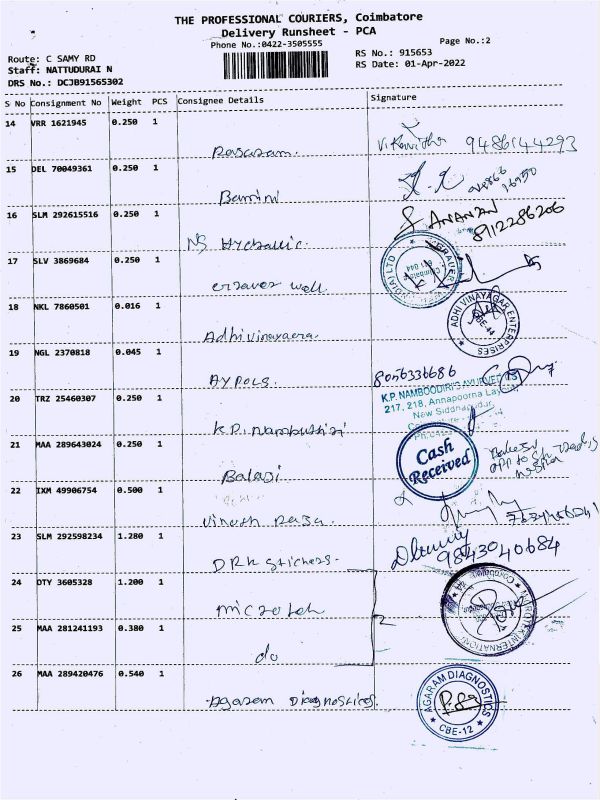 THE PROFESSIONAL COURIERS, Coimbatore
Delivery Runsheet - PCA
Phone No.:0422-3505555
Page No.:2
Route: C SAMY RD
RS No.: 915653
Staff: NATTUDURAI N
RS Date: 01-Apr-2022
DRS No.: DCJB91565302
S No Consignment No Weight PCS Consignee Details Signature
14 VRR 1621945 0.250 1
9486144293
15 DEL 70049361 0.250 1
Bamini
16 SLM 292615516 0.250 1
S ANANDAN
8912286206
NS Hydraulic.
17 SLV 3869684 0.250 1
18 NKL 7860501 0.016 1
ADHI VINAYAGAR ENTERPRISES
CBE-44
Adhivinayaera.
19 NGL 2370818 0.045 1
8056336686
20 TRZ 25460307 0.250 1
K.P. NAMBOODIRI'S AYURVEDITS
217, 218, Annapoorna Layout
New Siddhapudur,
K.P. Nambuthiri
21 MAA 289643024 0.250 1
Cash
Received
Balaji
22 IXM 49906754 0.500 1
Vinoth Raja.
23 SLM 292598234 1.280 1
9843040684
DRK Stickers.
24 DTY 3605328 1.200 1
Microtek
25 MAA 281241193 0.380 1
2
do
26 MAA 289420476 0.540 1
AGARAM DIAGNOSTICS
CBE-12
Agaram Diagnostics.